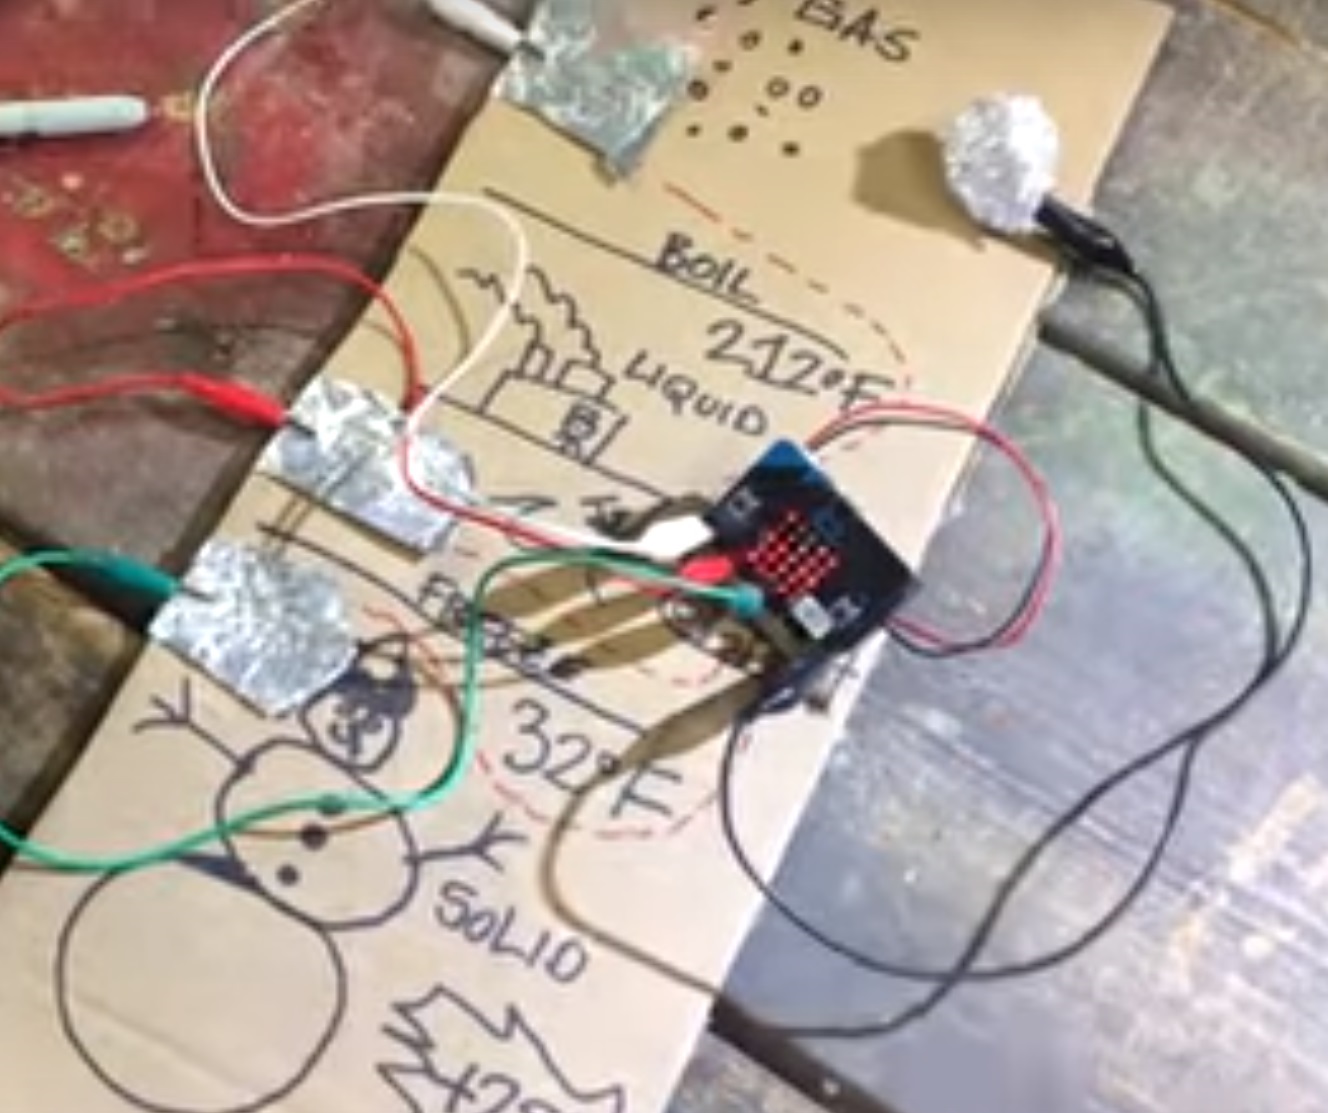 GAS
BOIL
212°F
LIQUID
FREEZE
32°F
SOLID